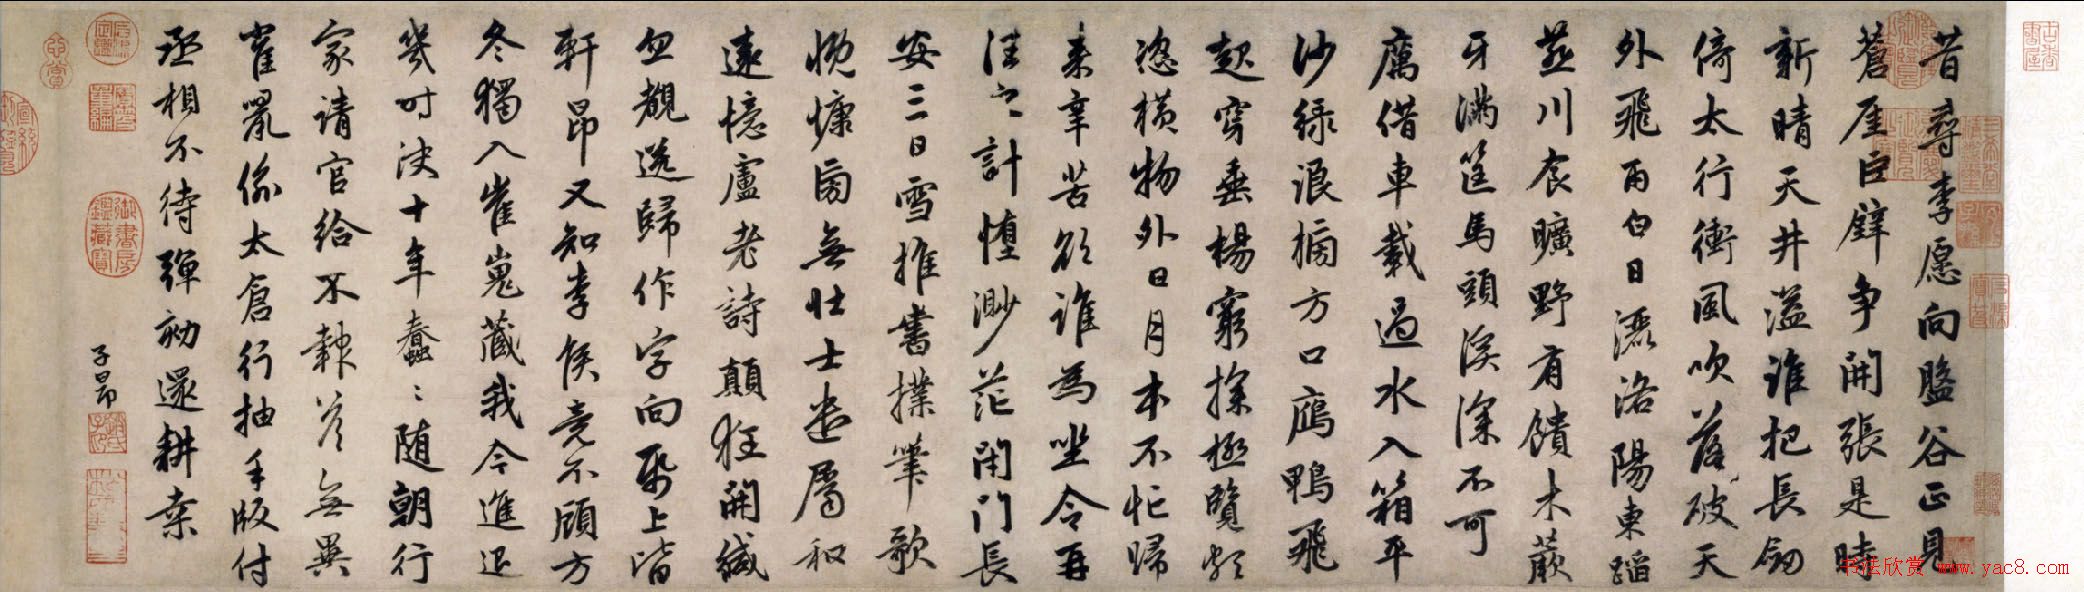 昔尋李愿向盤谷正見
蒼厓巨璧争開張是時
新晴天井溢誰把長劒
倚太行衝風吹落破天
外飛雨白日灑洛陽東蹈
燕川食曠野有饋木蕨
牙滿筐馬頭溪深不可
厲借車載過水入箱平
沙綠浪榜方口鴈鴨飛
起穿垂楊窮探極覽頗
恣橫物外日月本不忙歸
来辛苦欲誰為坐令再
往之計墮渺茫閉門長
安三日雪推書撲筆歌
慨慷旁無壯士遣屬和
遠憶盧老詩顛狂開緘
忽覩送歸作字向紙上皆
軒昂又知李侯竟不顧方
冬獨入崔嵬藏我今進退
幾时決十年蠢〻随朝行
家請官給不報荅無異
雀鼠偷太倉行抽手版付
丞相不待彈劾還耕桒
子昂
御書房鑑藏寶
书法欣赏 www.yac8.com